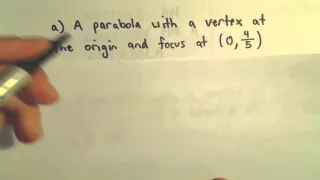 a) A parabola with a vertex at
the origin and focus at (0, 4/5)